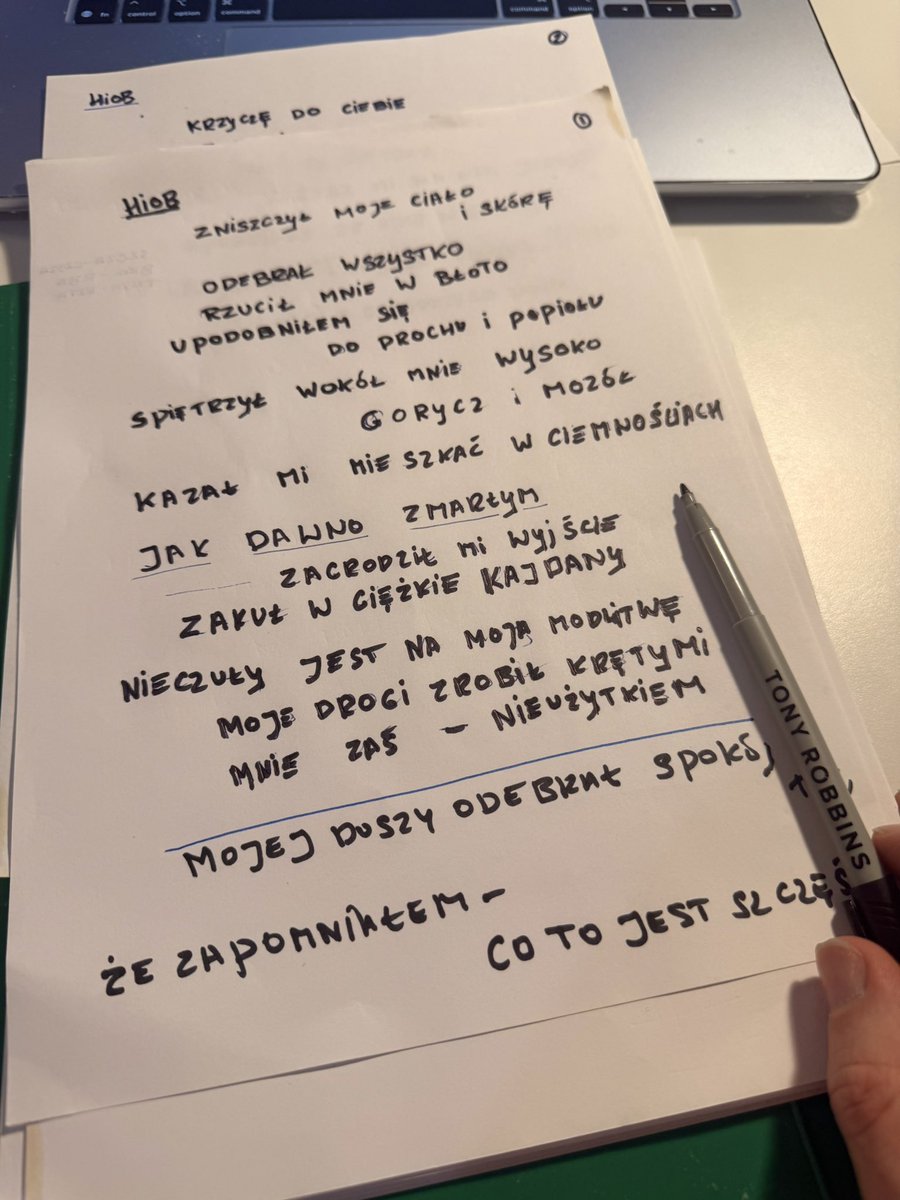 fn
control
option
command
command
option
②
HIOB
KRZYCZĘ DO CIEBIE
①
HIOB
ZNISZCZYŁ MOJE CIAŁO
i SKÓRĘ
ODEBRAŁ WSZYSTKO
RZUCIŁ MNIE W BŁOTO
UPODOBNIŁEM SIĘ
DO PROCHU i POPIOŁU
SPIĘTRZYŁ WOKÓŁ MNIE WYSOKO
GORYCZ i MOZÓŁ
KAZAŁ MI MIESZKAĆ W CIEMNOŚCIACH
JAK DAWNO ZMARŁYM
ZAGRODZIŁ MI WYJŚCIE
ZAKUŁ W CIĘŻKIE KAJDANY
NIECZUŁY JEST NA MOJĄ MODLITWĘ
MOJE DROGI ZROBIŁ KRĘTYMI
MNIE ZAŚ – NIEUŻYTKIEM
MOJEJ DUSZY ODEBRAŁ SPOKÓJ
ŻE ZAPOMNIAŁEM –
CO TO JEST SZCZĘŚ
TONY ROBBINS